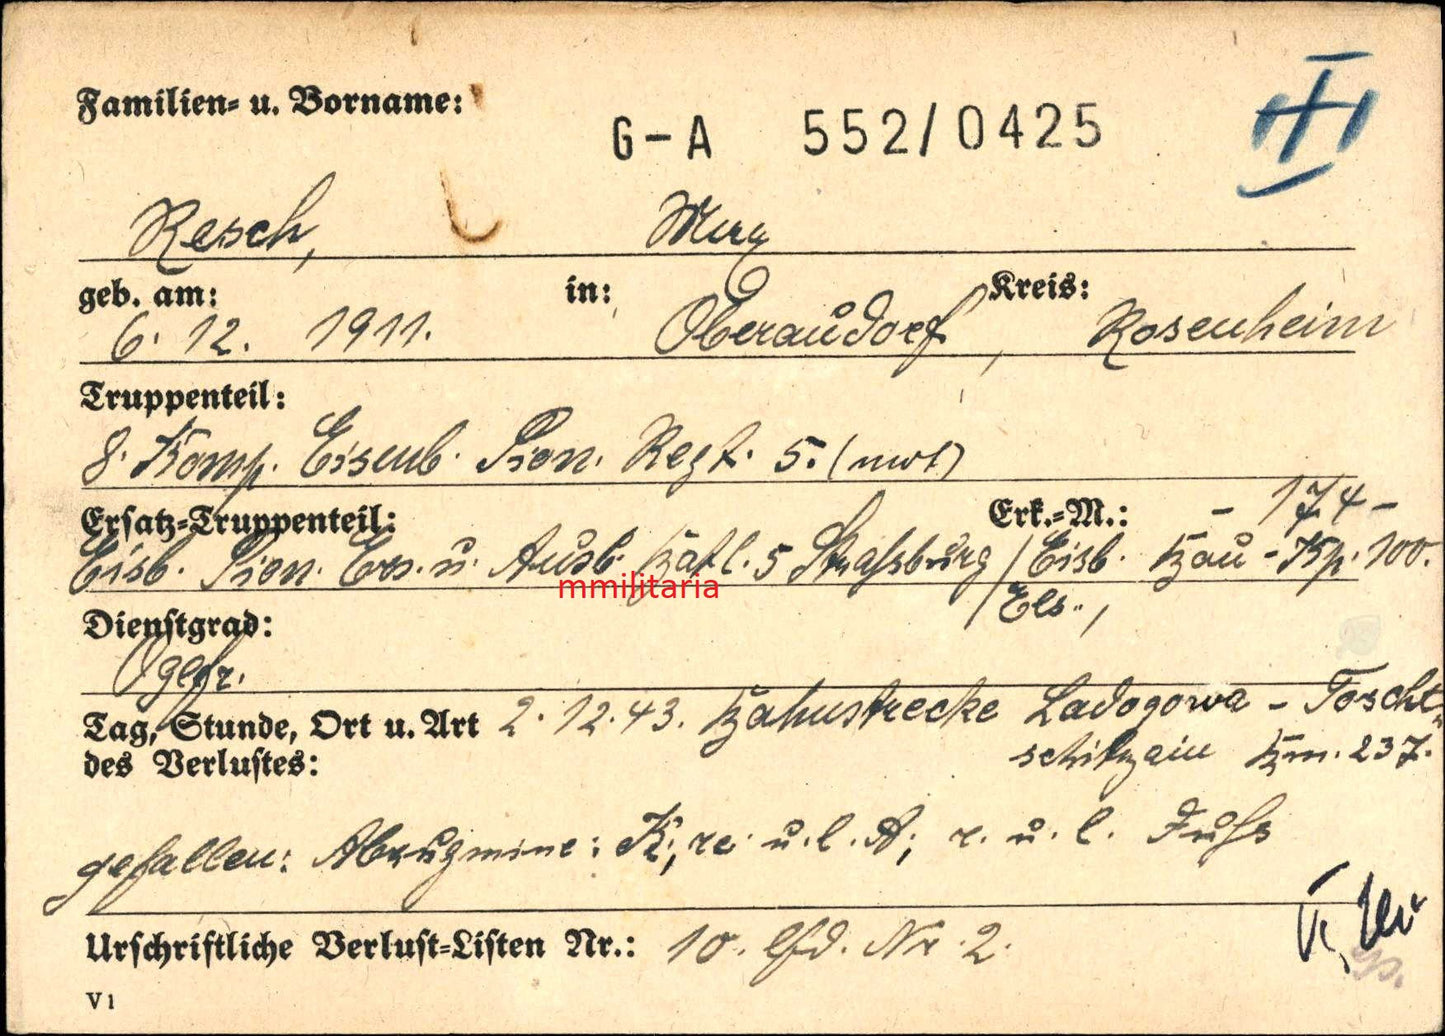 Familien- u. Vorname:
G-A 552/0425
III
Resch, Marx
geb. am: in: Kreis:
6. 12. 1911. Oberaudorf, Rosenheim
Truppenteil:
8. Komp. Eisenb. Pion. Regt. 5. (mot)
Ersatz-Truppenteil: Erk.-M.: - 174 -
Eisb. Pion. Ers. u. Ausb. Batl. 5 Straßburg / Eisb. Bau-Kp. 100.
mmilitaria
/ Els.,
Dienstgrad:
Ogefr.
Tag, Stunde, Ort u. Art 2. 12. 43. Bahnstrecke Ladogowa -
des Verlustes: Km. 237.
gefallen: Abzugmine: K., re. u. l. A; r. u. l. Fuß
Urschriftliche Verlust-Listen Nr.: 10. lfd. Nr. 2.
V1